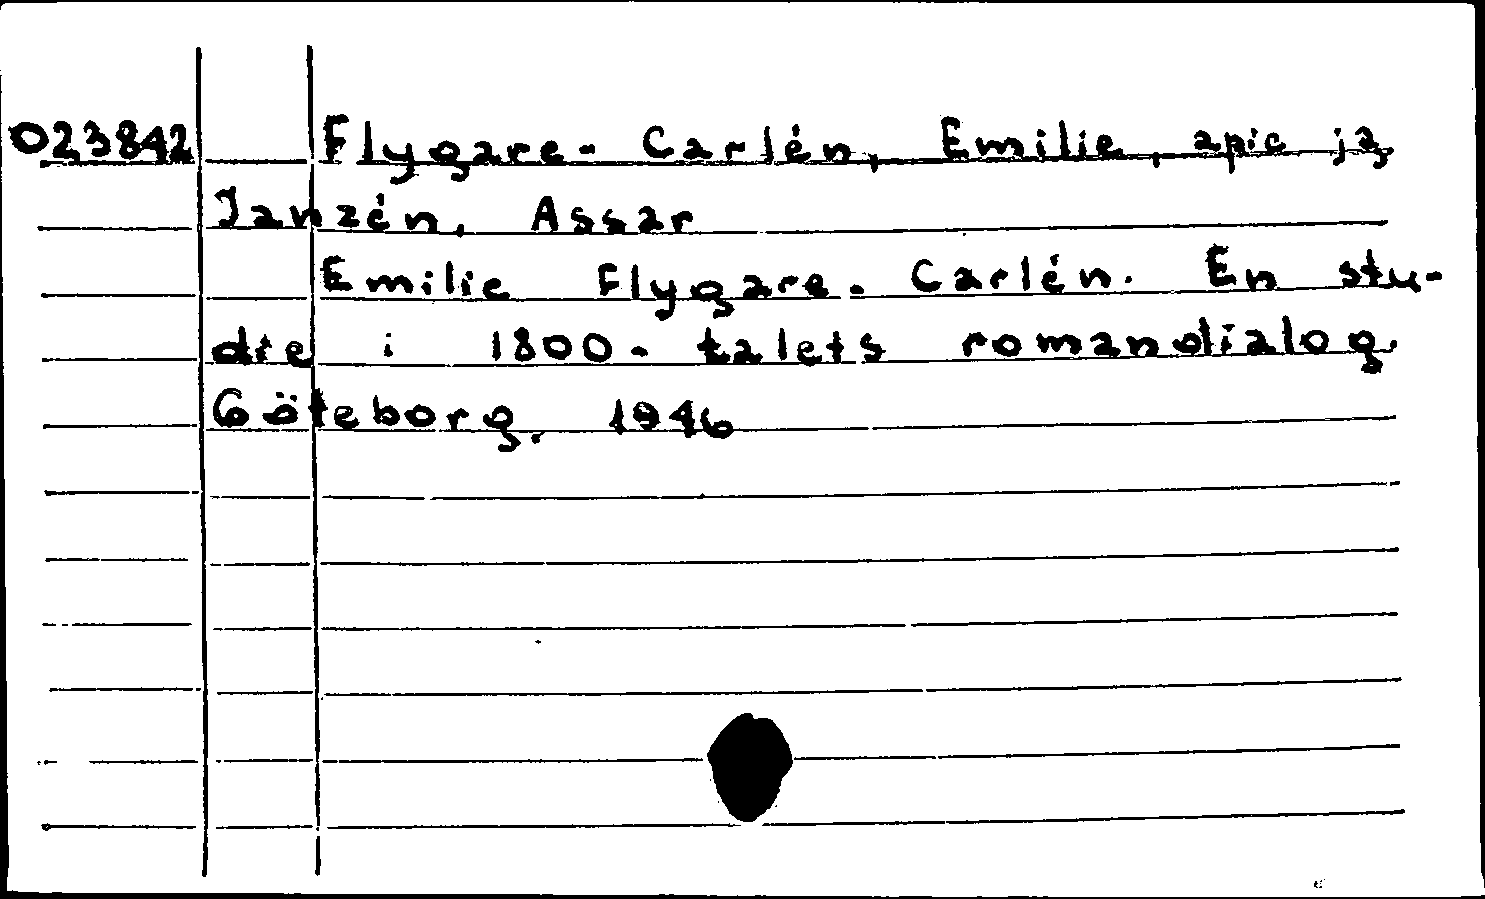 023842 Flygare-Carlén, Emilie, apie ją
Janzén, Assar
Emilie Flygare-Carlén. En stu-
die i 1800-talets romandialog.
Göteborg. 1946